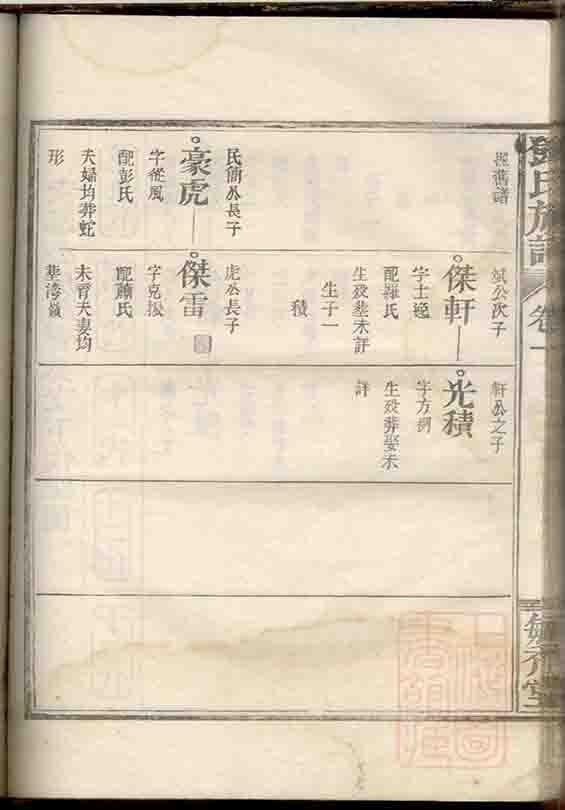 鄧氏族譜
卷一
舊譜
民簡公長子
豪虎
字從風
配彭氏
夫婦均葬蛇
形
斌公次子
傑軒
字士逸
配羅氏
生歿葬未詳
生子一
積
虎公長子
傑雷
字克振
配蕭氏
未育夫妻均
葬灣嶺
軒公之子
光積
字方
生歿葬娶未
詳